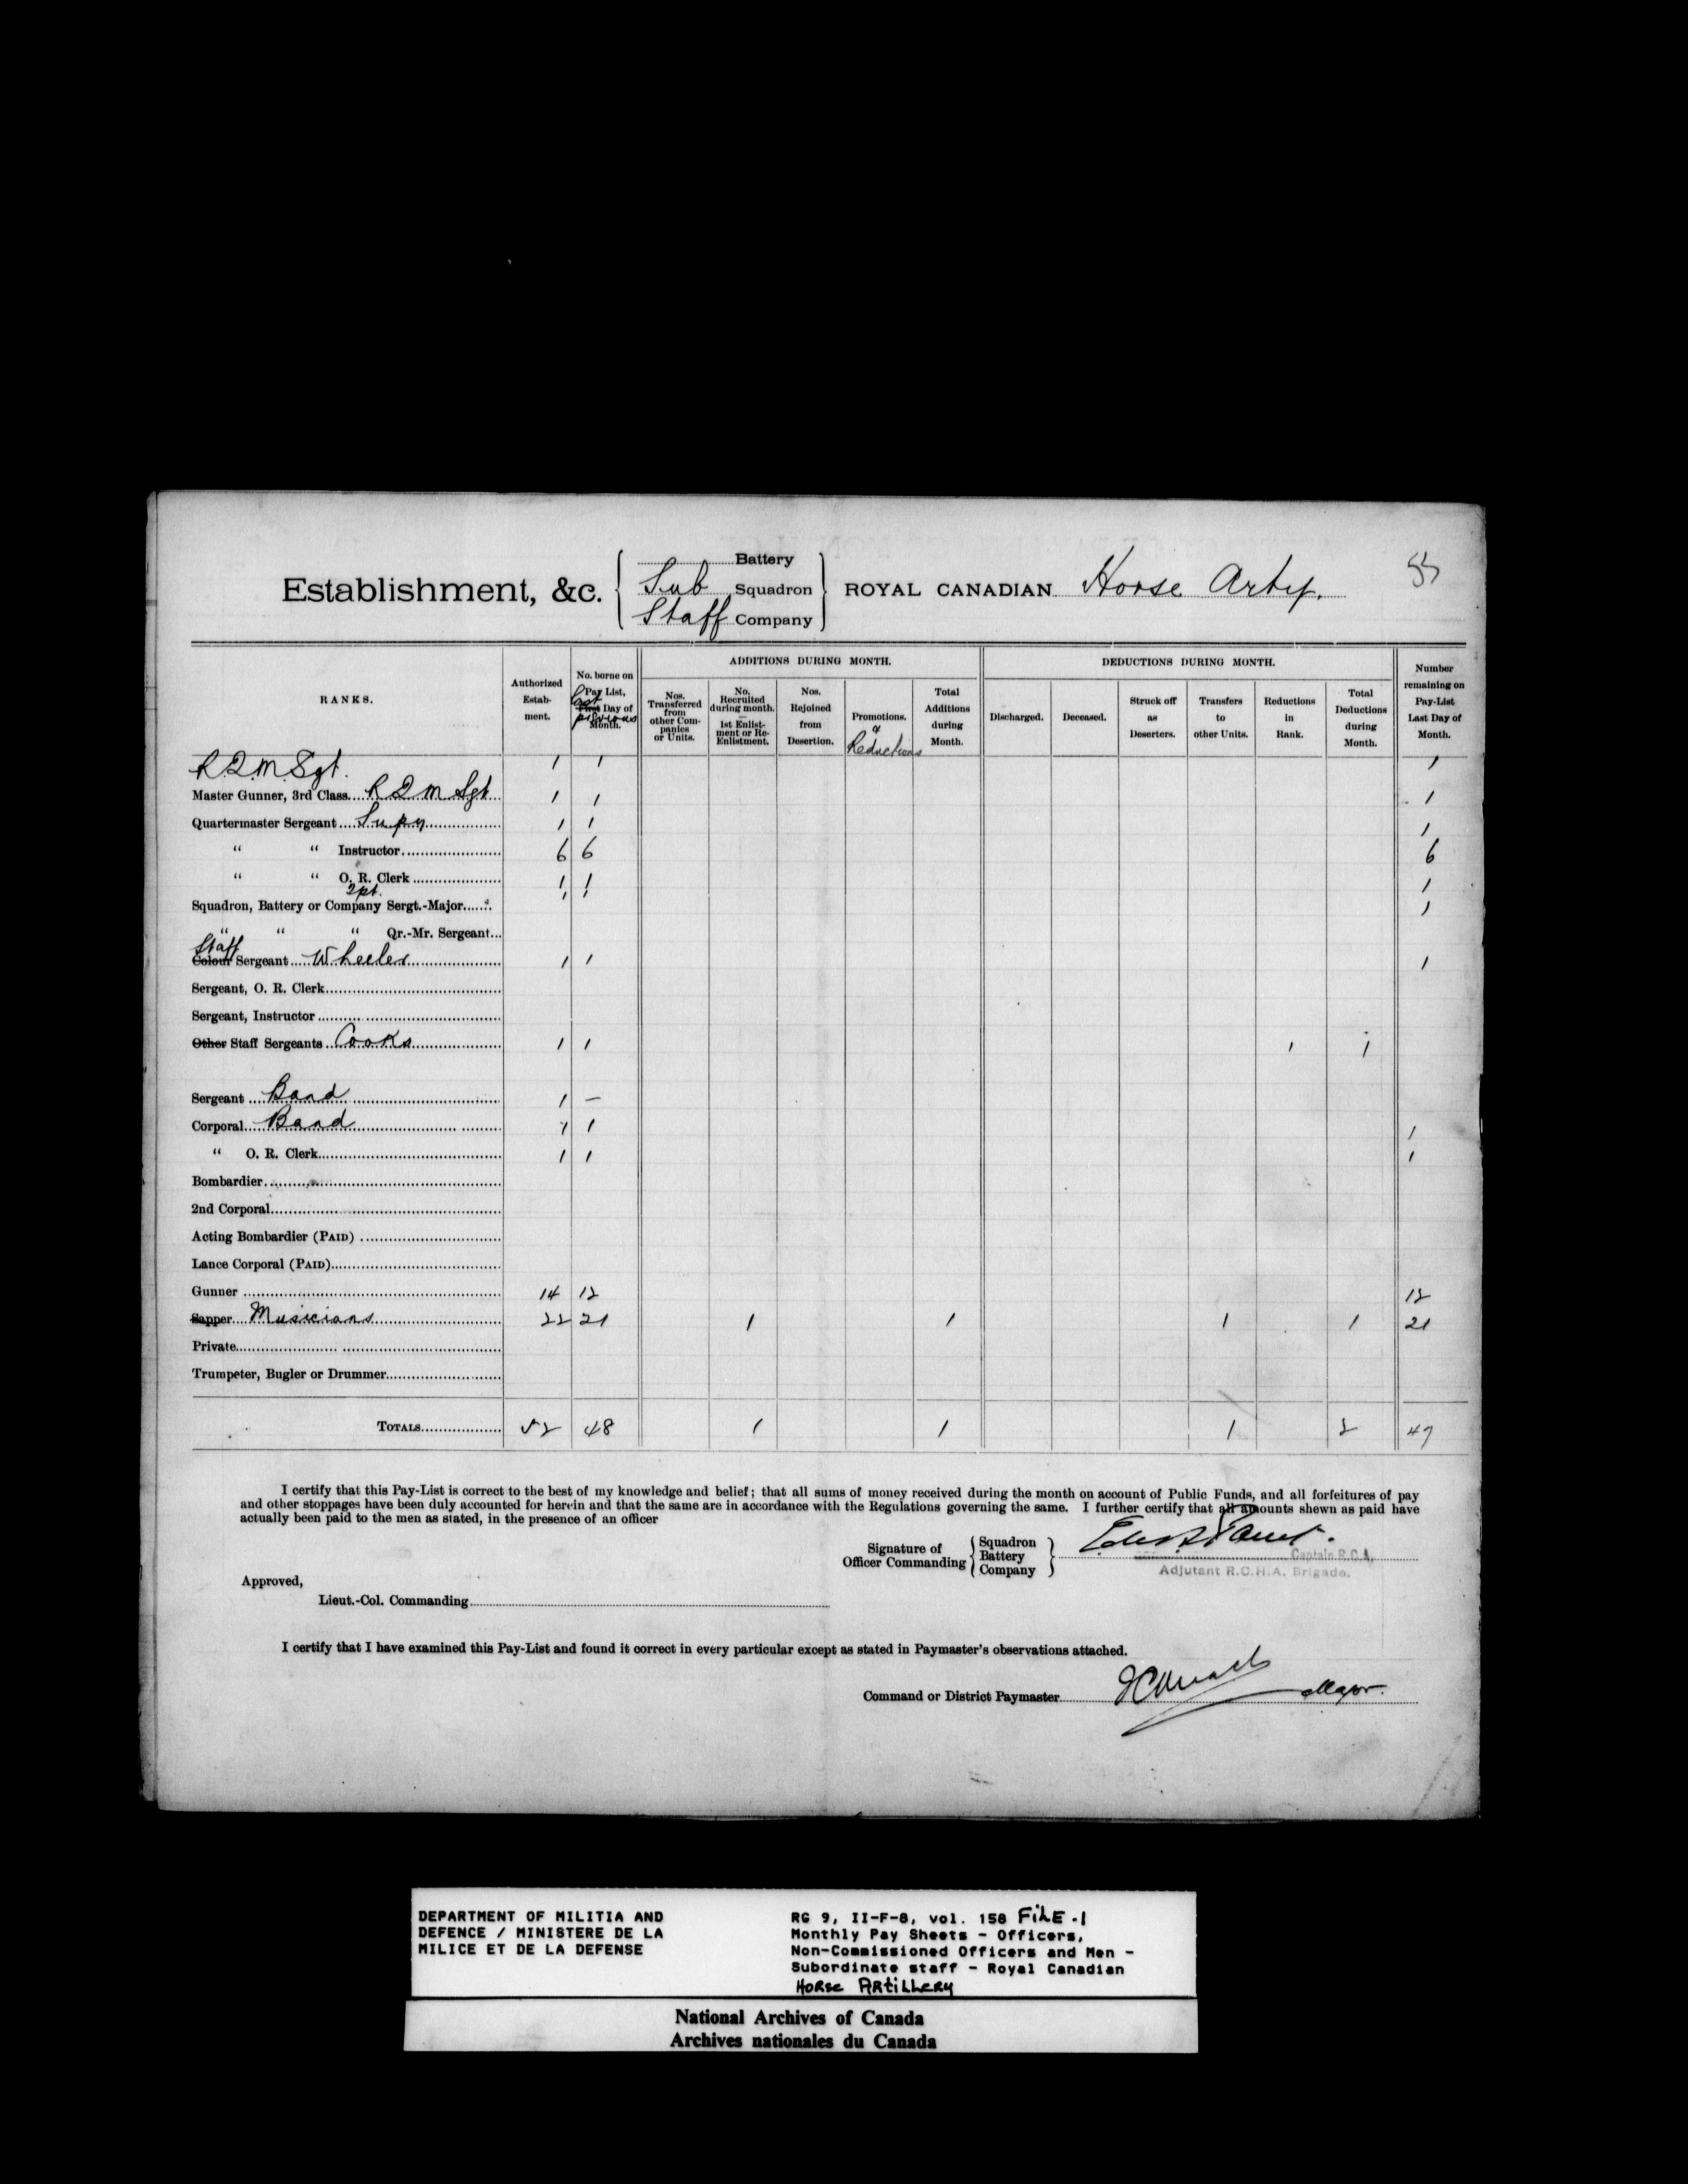 55
Establishment, &c. { Battery
Sub Squadron
Staff Company } ROYAL CANADIAN Horse Arty.
RANKS.
Authorized Estab-ment.
No. borne on Pay List, last First Day of previous Month.
ADDITIONS DURING MONTH.
Nos. Transferred from other Companies or Units.
No. Recruited during month. — 1st Enlistment or Re-Enlistment.
Nos. Rejoined from Desertion.
Promotions. & Reductions
Total Additions during Month.
DEDUCTIONS DURING MONTH.
Discharged.
Deceased.
Struck off as Deserters.
Transfers to other Units.
Reductions in Rank.
Total Deductions during Month.
Number remaining on Pay-List Last Day of Month.
R.Q.M.Sgt. 1 1 1
Master Gunner, 3rd Class R Q M Sgt 1 1 1
Quartermaster Sergeant Supy 1 1 1
“ “ Instructor 6 6 6
“ “ O. R. Clerk 1 1 1
Squadron, Battery or Company Sergt.-Major 1 1 1
“ “ “ Qr.-Mr. Sergeant
Staff
Colour Sergeant Wheeler 1 1 1
Sergeant, O. R. Clerk
Sergeant, Instructor
Other Staff Sergeants Cooks 1 1 1 1
Sergeant Band 1 —
Corporal Band 1 1 1
“ O. R. Clerk 1 1 1
Bombardier
2nd Corporal
Acting Bombardier (PAID)
Lance Corporal (PAID)
Gunner 14 12 12
Sapper Musicians 22 21 1 1 1 1 21
Private
Trumpeter, Bugler or Drummer
TOTALS 52 48 1 1 1 2 47
I certify that this Pay-List is correct to the best of my knowledge and belief; that all sums of money received during the month on account of Public Funds, and all forfeitures of pay
and other stoppages have been duly accounted for herein and that the same are in accordance with the Regulations governing the same. I further certify that all amounts shewn as paid have
actually been paid to the men as stated, in the presence of an officer
Signature of Officer Commanding { Squadron
Battery
Company }
Captain R.C.A.
Adjutant R.C.H.A. Brigade.
Approved,
Lieut.-Col. Commanding
I certify that I have examined this Pay-List and found it correct in every particular except as stated in Paymaster's observations attached.
Command or District Paymaster Major.
DEPARTMENT OF MILITIA AND
DEFENCE / MINISTERE DE LA
MILICE ET DE LA DEFENSE
RG 9, II-F-8, vol. 158 FiLE.1
Monthly Pay Sheets - Officers,
Non-Commissioned Officers and Men -
Subordinate staff - Royal Canadian
HORSE ARTiLLERY
National Archives of Canada
Archives nationales du Canada